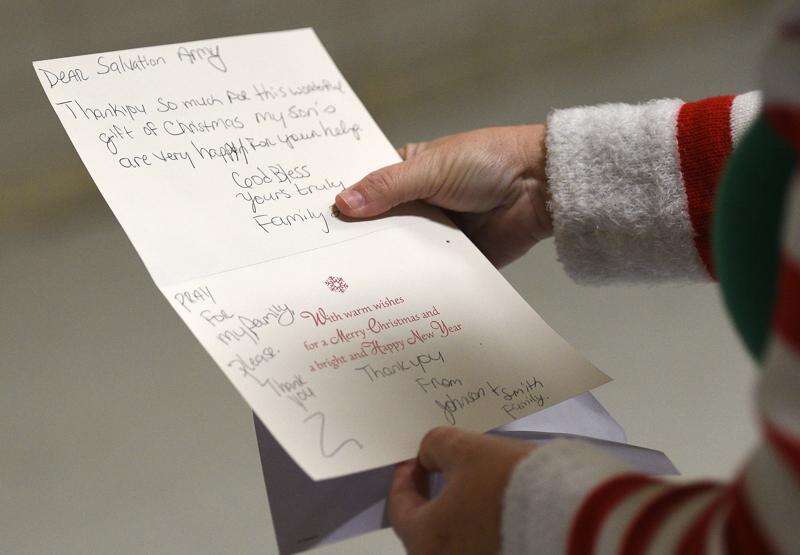 DEAR Salvation Army
Thankyou so much For this wonderful
gift of Christmas my son's
are very happy For your help.
God Bless
yours truly
Family
PRAY
For
my family
Please.
Thank
you
With warm wishes
for a Merry Christmas and
a bright and Happy New Year
Thank you
From
Johnson + Smith
Family.